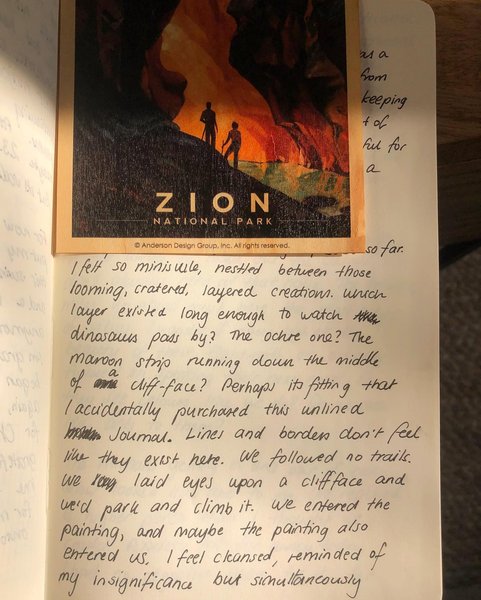 as a
from
keeping
t of
ful for
a
ZION
NATIONAL PARK
© Anderson Design Group, Inc. All rights reserved.
so far.
I felt so miniscule, nestled between those
looming, cratered, layered creations. Which
layer existed long enough to watch
dinosaurs pass by? The ochre one? The
maroon strip running down the middle
of a cliff-face? Perhaps its fitting that
I accidentally purchased this unlined
Journal. Lines and borders don't feel
like they exist here. We followed no trails.
We laid eyes upon a cliffface and
we'd park and climb it. We entered the
painting, and maybe the painting also
entered us. I feel cleansed, reminded of
my insignificance but simultaneously